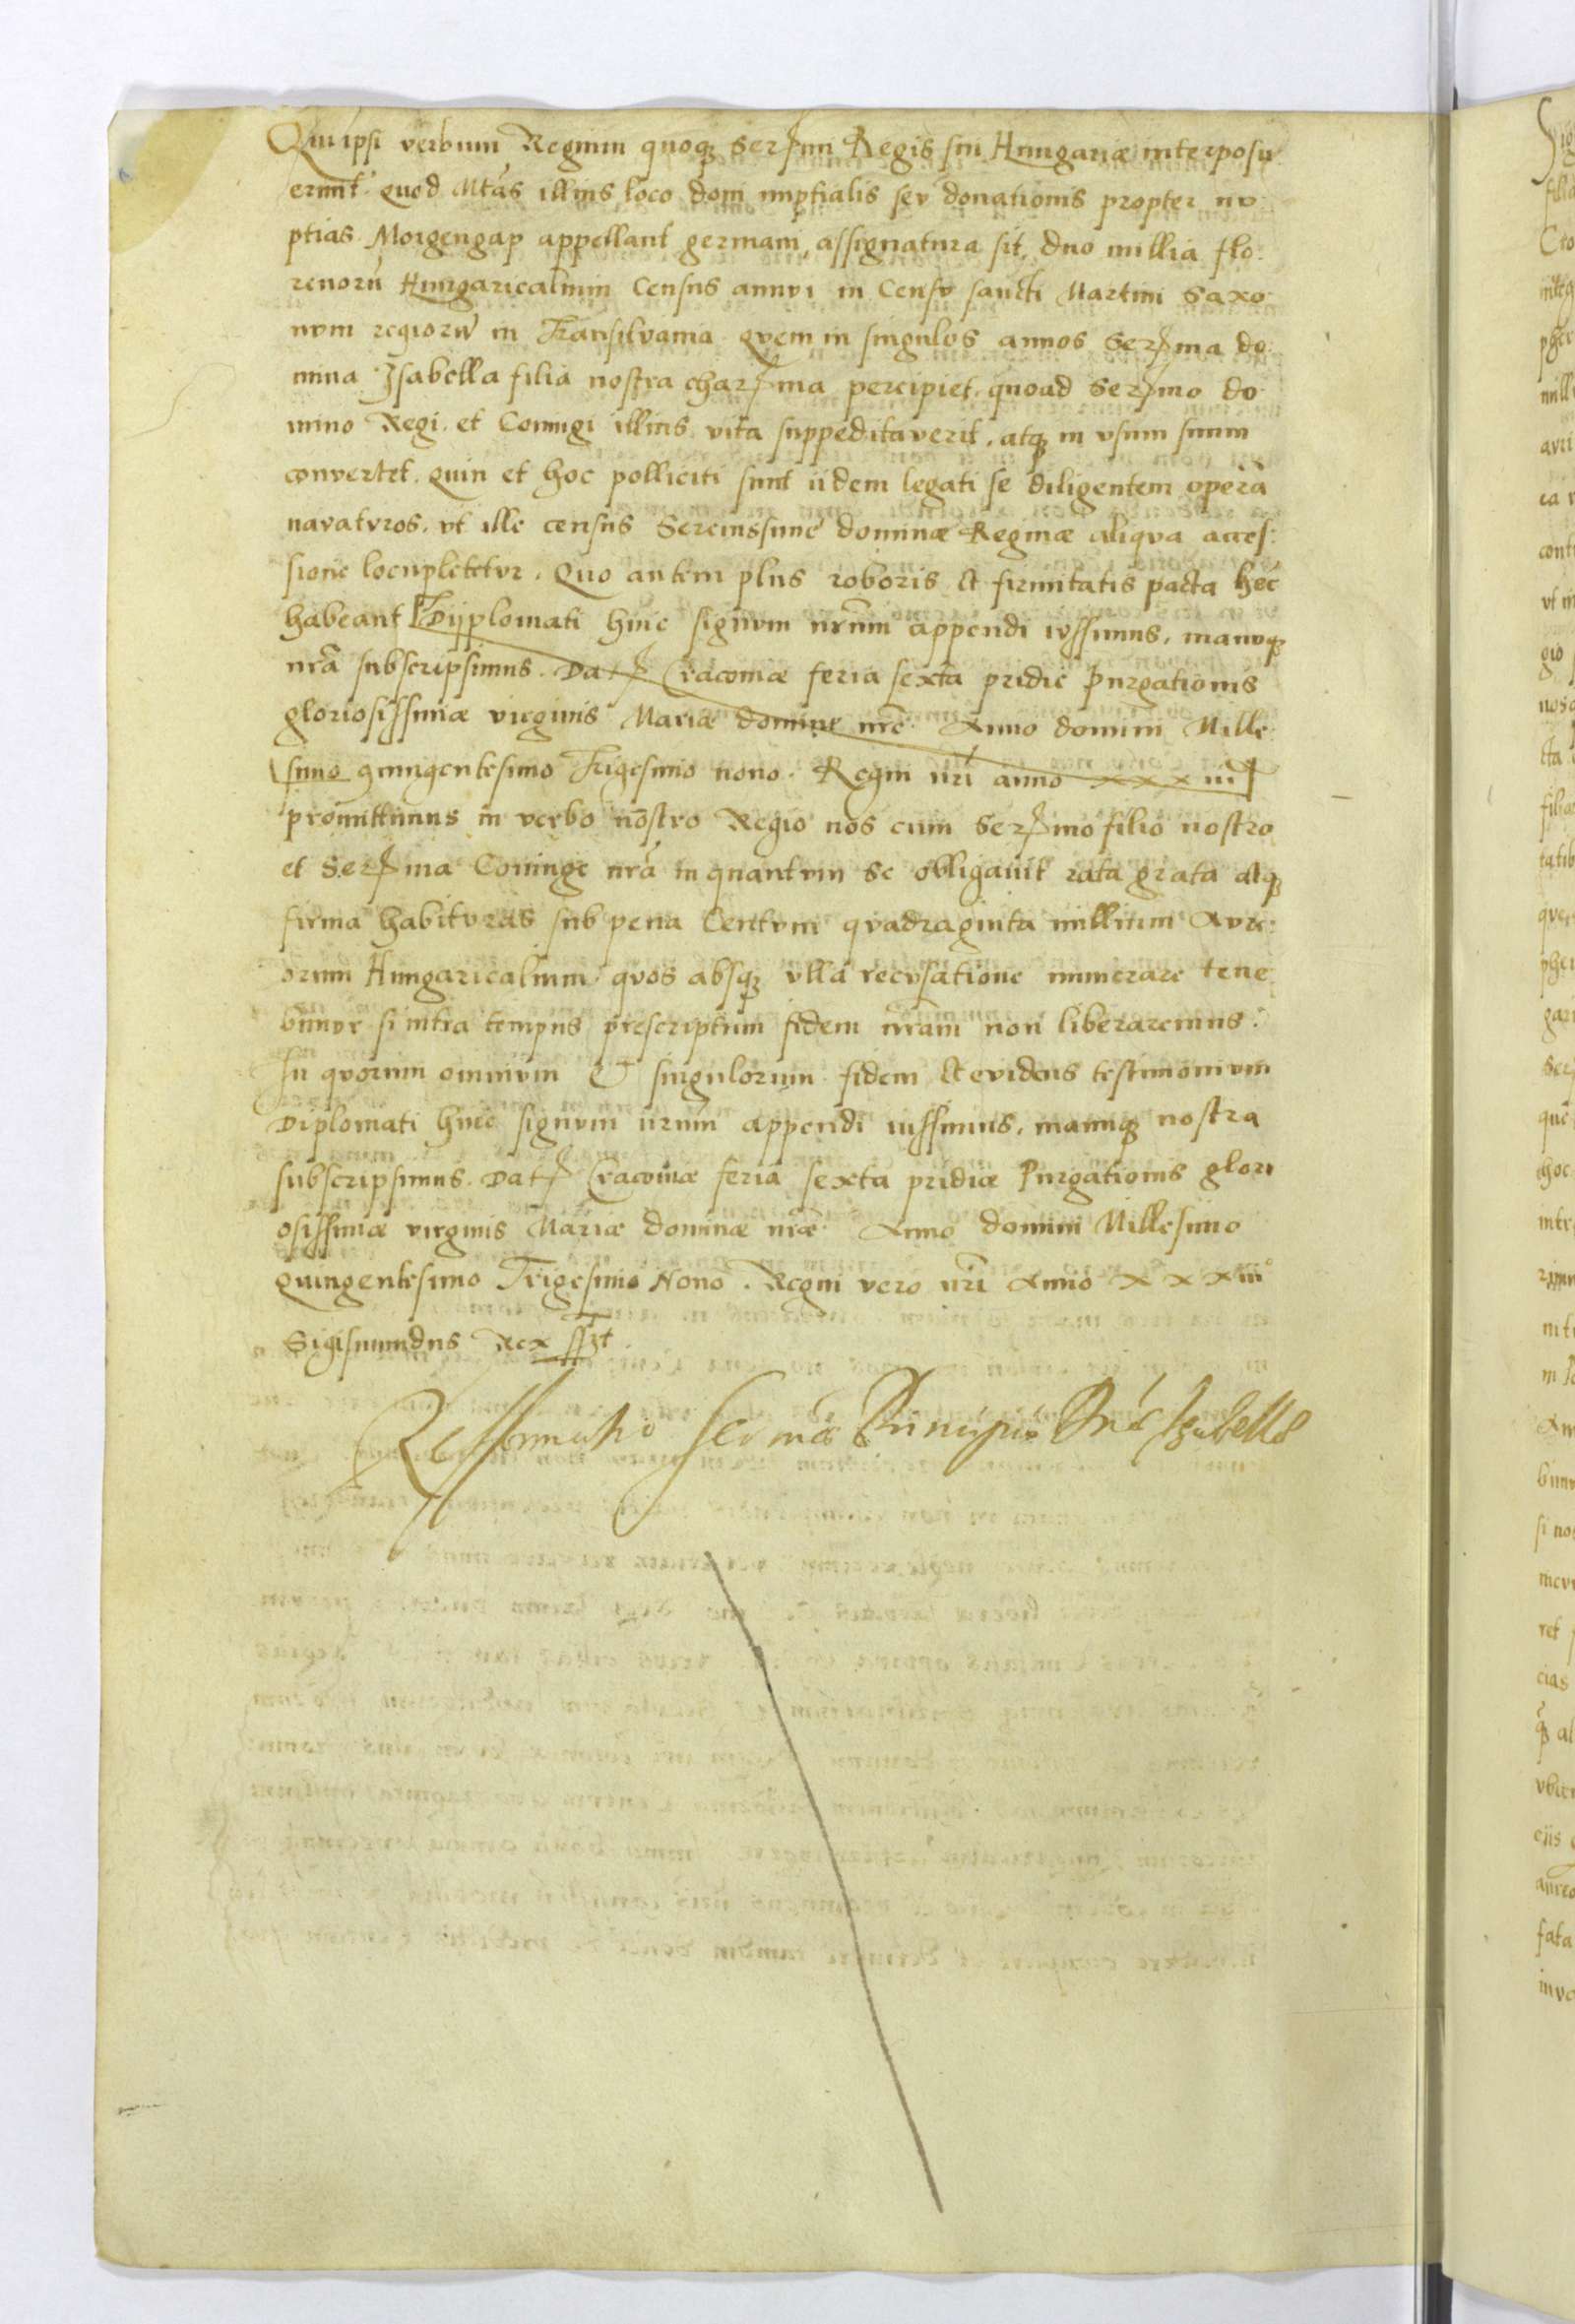 Qui ipsi verbum Regium quoq; Serr̃mi Regis sui Hungariæ interposu
erunt. quod Mtãs illius loco doni nuptialis seu donationis propter nu
ptias Morgengap appellant germani, assignatura sit, duo millia flo:
renorũ Hungaricalium Census annui in Censv sancti Martini Saxo
nvm regiorũ in Transilvania qvem in singulos annos Serr̃ma do
mina Isabella filia nostra charr̃ma percipiet. quoad Serr̃mo do
mino Regi. et Coniugi illius vita suppeditaverit, atq; in vsum suum
convertet. Quin et hoc polliciti sunt iidem legati se diligentem operã
navatvros. vt ille census Serenissime dominæ Reginæ aliqva acces:
sione locupletetvr. Quo autem plus roboris et firmitatis pacta hec
habeant Dyplomati huic signvm nr̃um appendi ivssimus, manvq;
nrã subscripsimus. Dat̃ Cracoviæ feria sexta pridie Purgationis
gloriosissimæ virginis Mariæ domine nrẽ Anno domini Mille
simo quingentesimo Trigesimo nono. Regni nrĩ anno xxxiii
promittimus in verbo nostro Regio nos cum Serr̃mo filio nostro
et Serr̃ma Coniuge nrã in quantvm se obligavit rata grata atq;
firma habitvros sub pena Centvm qvadraginta millium Avre:
orum Hungaricalium quos absq; vlla recvsatione numerare tene
bimvr si intra tempus prescriptum fidem nr̃am non liberaremus.
In qvorum omnivm Et singulorum fidem et evidens testimonivm
Diplomati huic signvm nr̃um appendi iussimus, manuq; nostra
subscripsimus. Dat̃ Cracoviæ feria sexta pridiæ Purgationis glori
osissimæ virginis Mariæ dominæ nræ̃ Anno domini Millesimo
quingentesimo Trigesimo Nono. Regni vero nrĩ Anno xxxiii
Sigismundus Rex sszt
Reformatio Sermæ Principis Dnæ Izabellæ